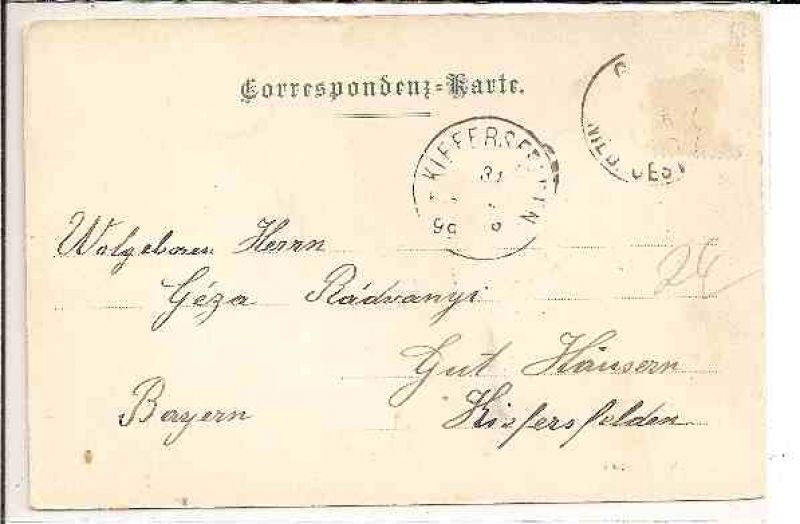 Correspondenz-Karte.
KIEFERSFELDEN
31
99
Wolgeboren Herrn
Géza Rádvanyi
24
Gut Häusern
Bayern
Kiefersfelden